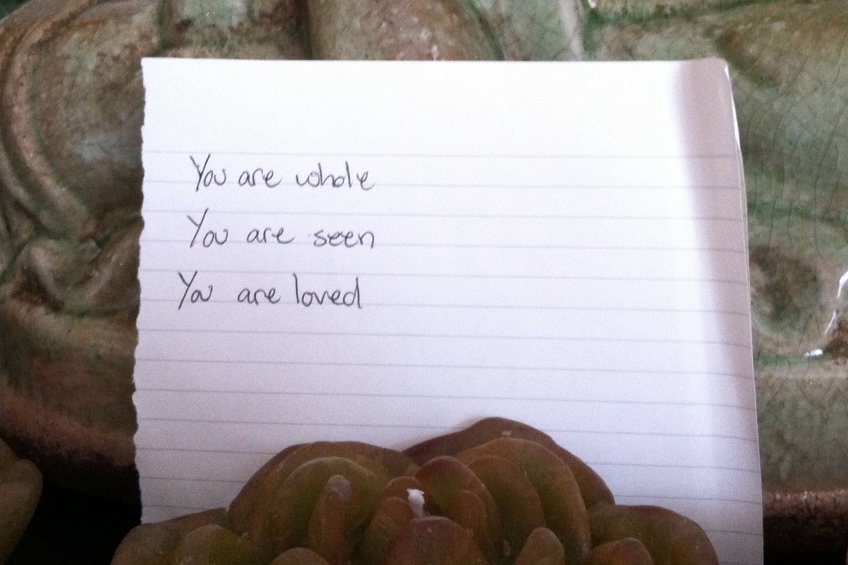 You are whole
You are seen
You are loved